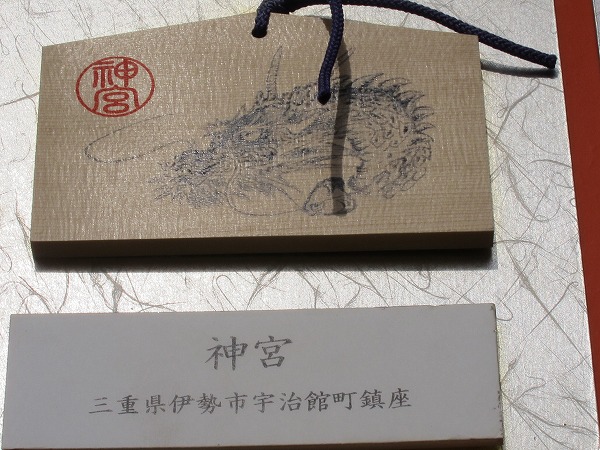 神宮
神宮
三重県伊勢市宇治館町鎮座